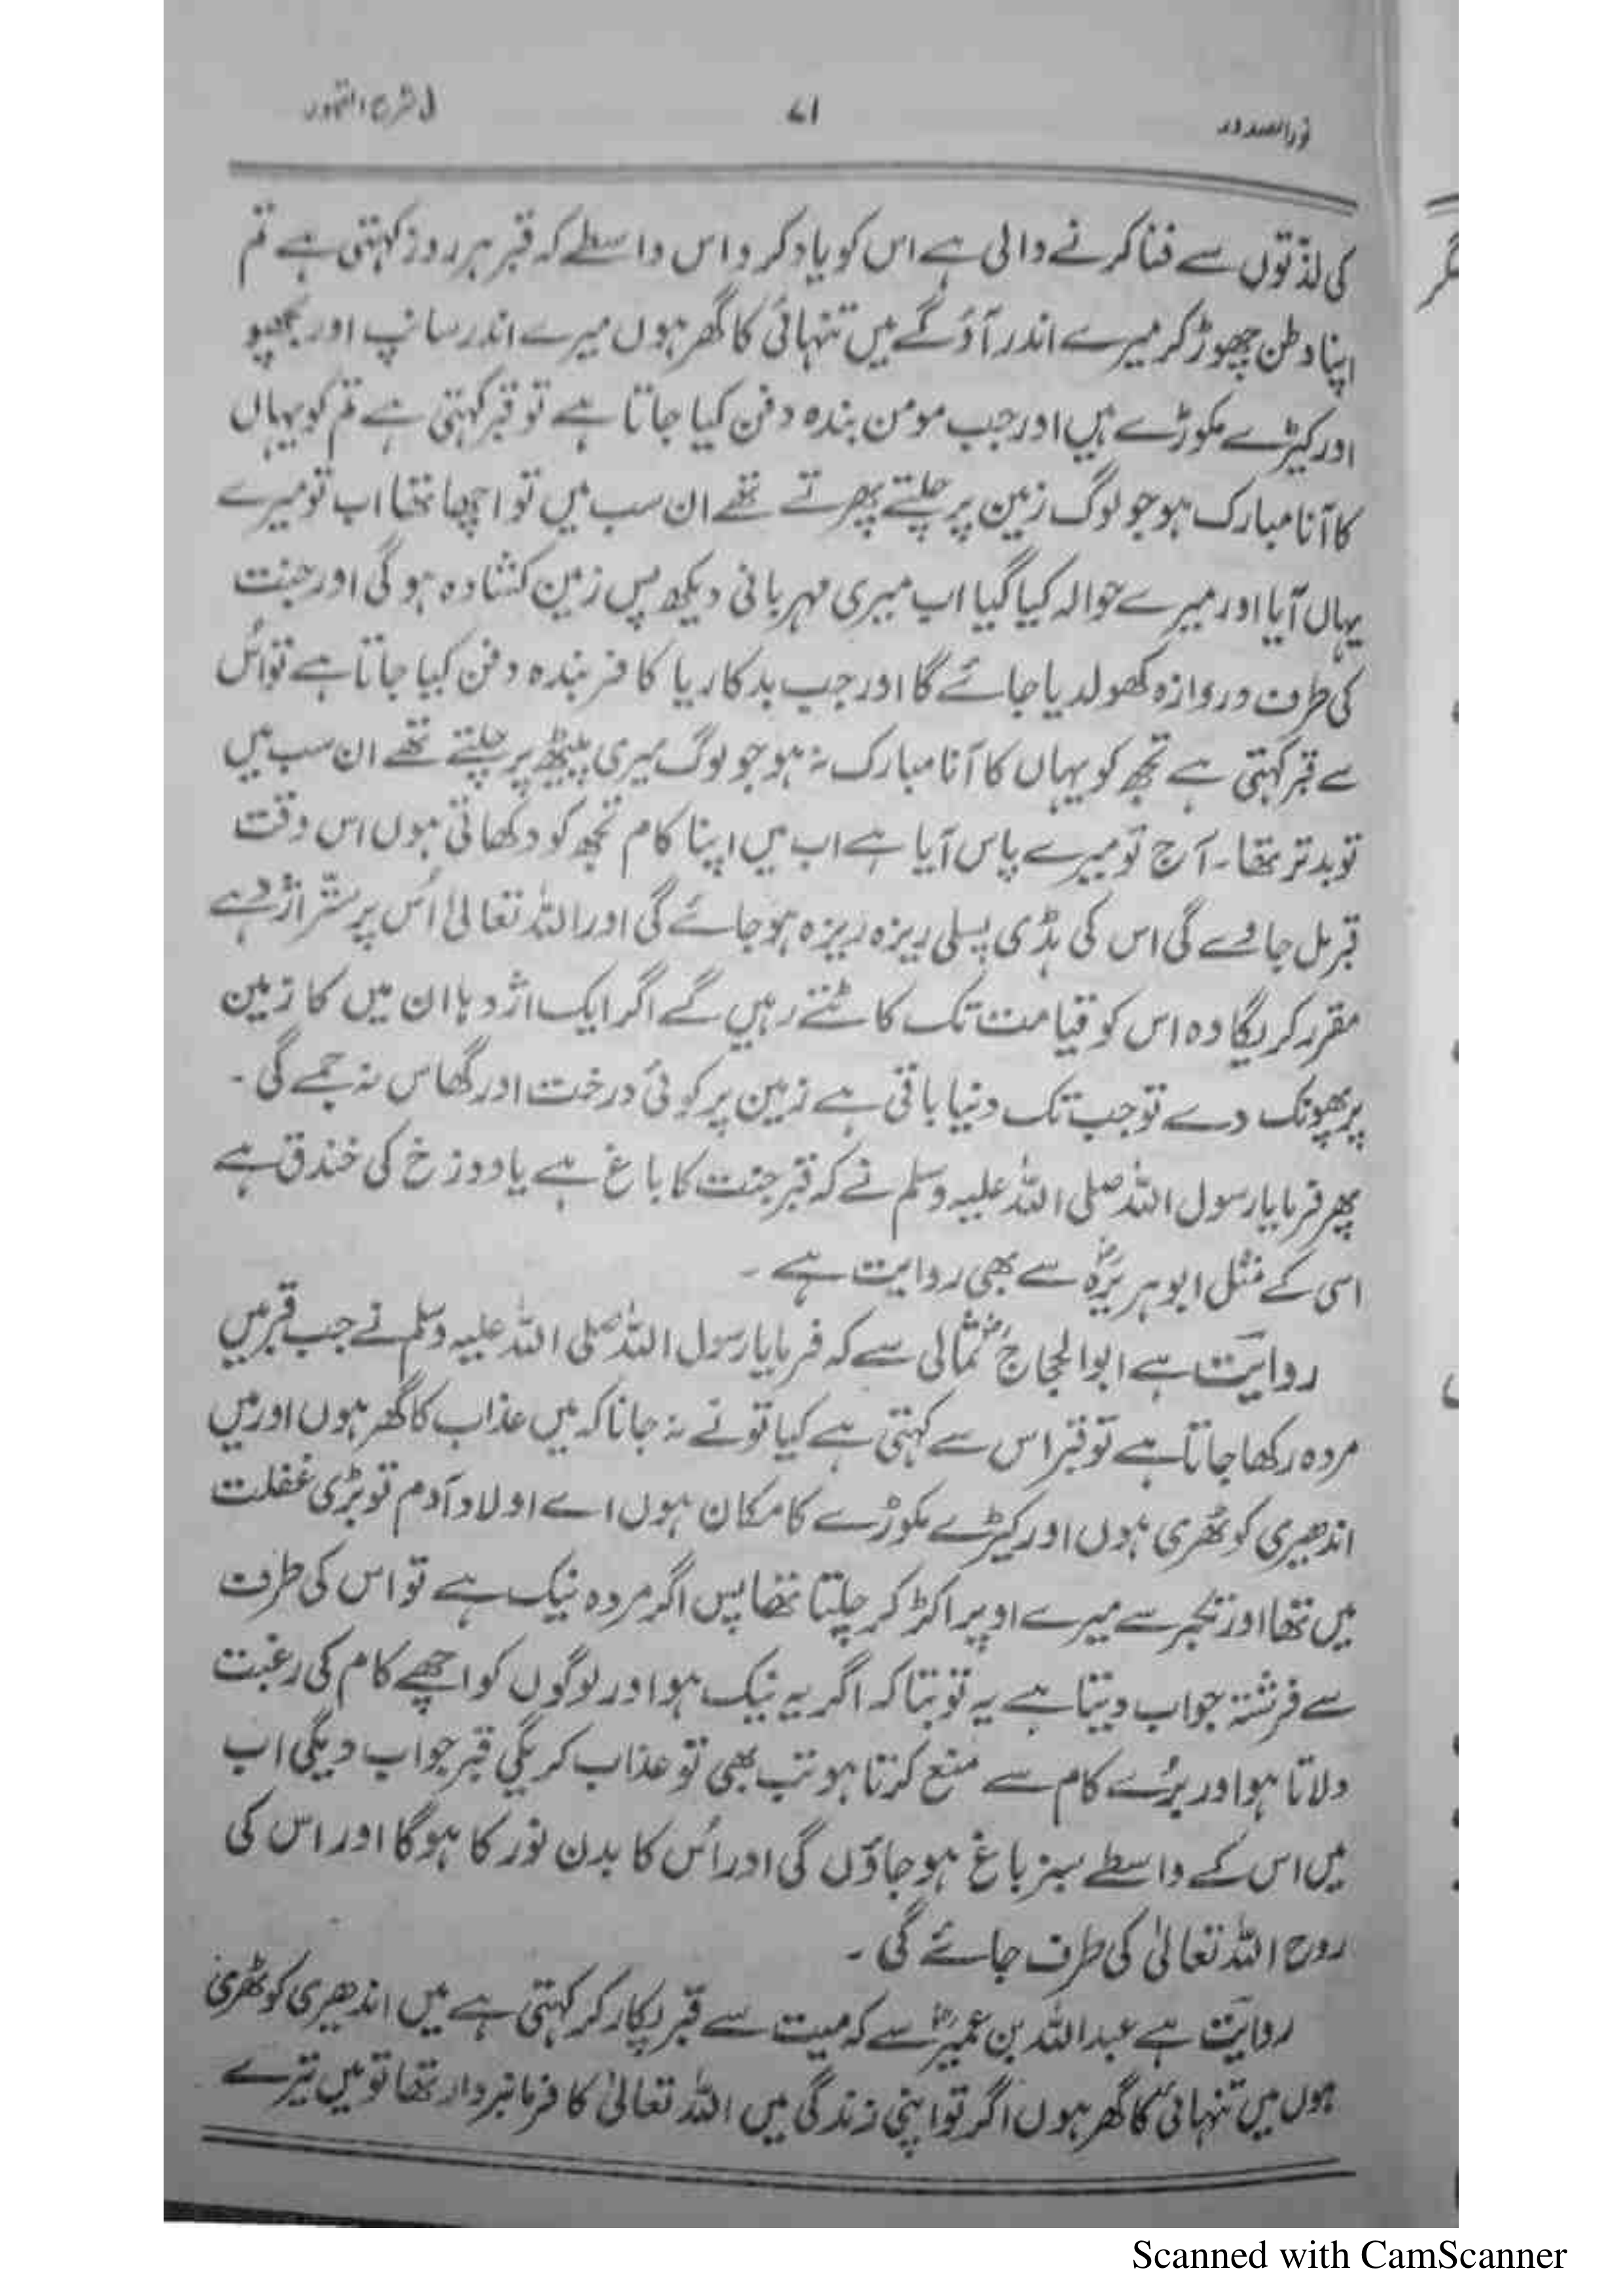 نور الصدور ۷۱ فی شرح القبور
کی لذتوں سے فنا کرنے والی ہے اس کو یاد کرو اس واسطے کہ قبر ہر روز کہتی ہے تم
اپنا وطن چھوڑ کر میرے اندر آؤ گے میں تنہائی کا گھر ہوں میرے اندر سانپ اور بچھو
اور کیڑے مکوڑے ہیں اور جب مومن بندہ دفن کیا جاتا ہے تو قبر کہتی ہے تم کو یہاں
کا آنا مبارک ہو جو لوگ زمین پر چلتے پھرتے تھے ان سب میں تو اچھا تھا اب تو میرے
یہاں آیا اور میرے حوالہ کیا گیا اب میری مہربانی دیکھ پس زمین کشادہ ہو گی اور جنت
کی طرف دروازہ کھولدیا جائے گا اور جب بدکار یا کافر بندہ دفن کیا جاتا ہے تو اُس
سے قبر کہتی ہے تجھ کو یہاں کا آنا مبارک نہ ہو جو لوگ میری پیٹھ پر چلتے تھے ان سب میں
تو بدتر تھا۔ آج تو میرے پاس آیا ہے اب میں اپنا کام تجھ کو دکھاتی ہوں اس وقت
قبر مل جاوے گی اس کی ہڈی پسلی ریزہ ریزہ ہو جائے گی اور اللہ تعالیٰ اُس پر ستّر اژدہے
مقرر کریگا وہ اس کو قیامت تک کاٹتے رہیں گے اگر ایک اژدہا ان میں کا زمین
پر پھونک دے تو جب تک دنیا باقی ہے زمین پر کوئی درخت اور گھاس نہ جمے گی۔
پھر فرمایا رسول اللہ صلی اللہ علیہ وسلم نے کہ قبر جنت کا باغ ہے یا دوزخ کی خندق ہے
اسی کے مثل ابو ہریرہؓ سے بھی روایت ہے۔
روایت ہے ابوالحجاجؓ ثمالی سے کہ فرمایا رسول اللہ صلی اللہ علیہ وسلم نے جب قبر میں
مردہ رکھا جاتا ہے تو قبر اس سے کہتی ہے کیا تو نے نہ جانا کہ میں عذاب کا گھر ہوں اور میں
اندھیری کوٹھری ہوں اور کیڑے مکوڑے کا مکان ہوں اے اولاد آدم تو بڑی غفلت
میں تھا اور تکبر سے میرے اوپر اکڑ کر چلتا تھا پس اگر مردہ نیک ہے تو اس کی طرف
سے فرشتہ جواب دیتا ہے یہ تو بتا کہ اگر یہ نیک ہو اور لوگوں کو اچھے کام کی رغبت
دلاتا ہو اور بُرے کام سے منع کرتا ہو تب بھی تو عذاب کریگی قبر جواب دیگی اب
میں اس کے واسطے سبز باغ ہو جاؤں گی اور اُس کا بدن نور کا ہوگا اور اس کی
روح اللہ تعالیٰ کی طرف جائے گی۔
روایت ہے عبداللہ بن عمیرؓ سے کہ میت سے قبر پکار کر کہتی ہے میں اندھیری کوٹھری
ہوں میں تنہائی کا گھر ہوں اگر تو اپنی زندگی میں اللہ تعالیٰ کا فرمانبردار تھا تو میں تیرے
Scanned with CamScanner